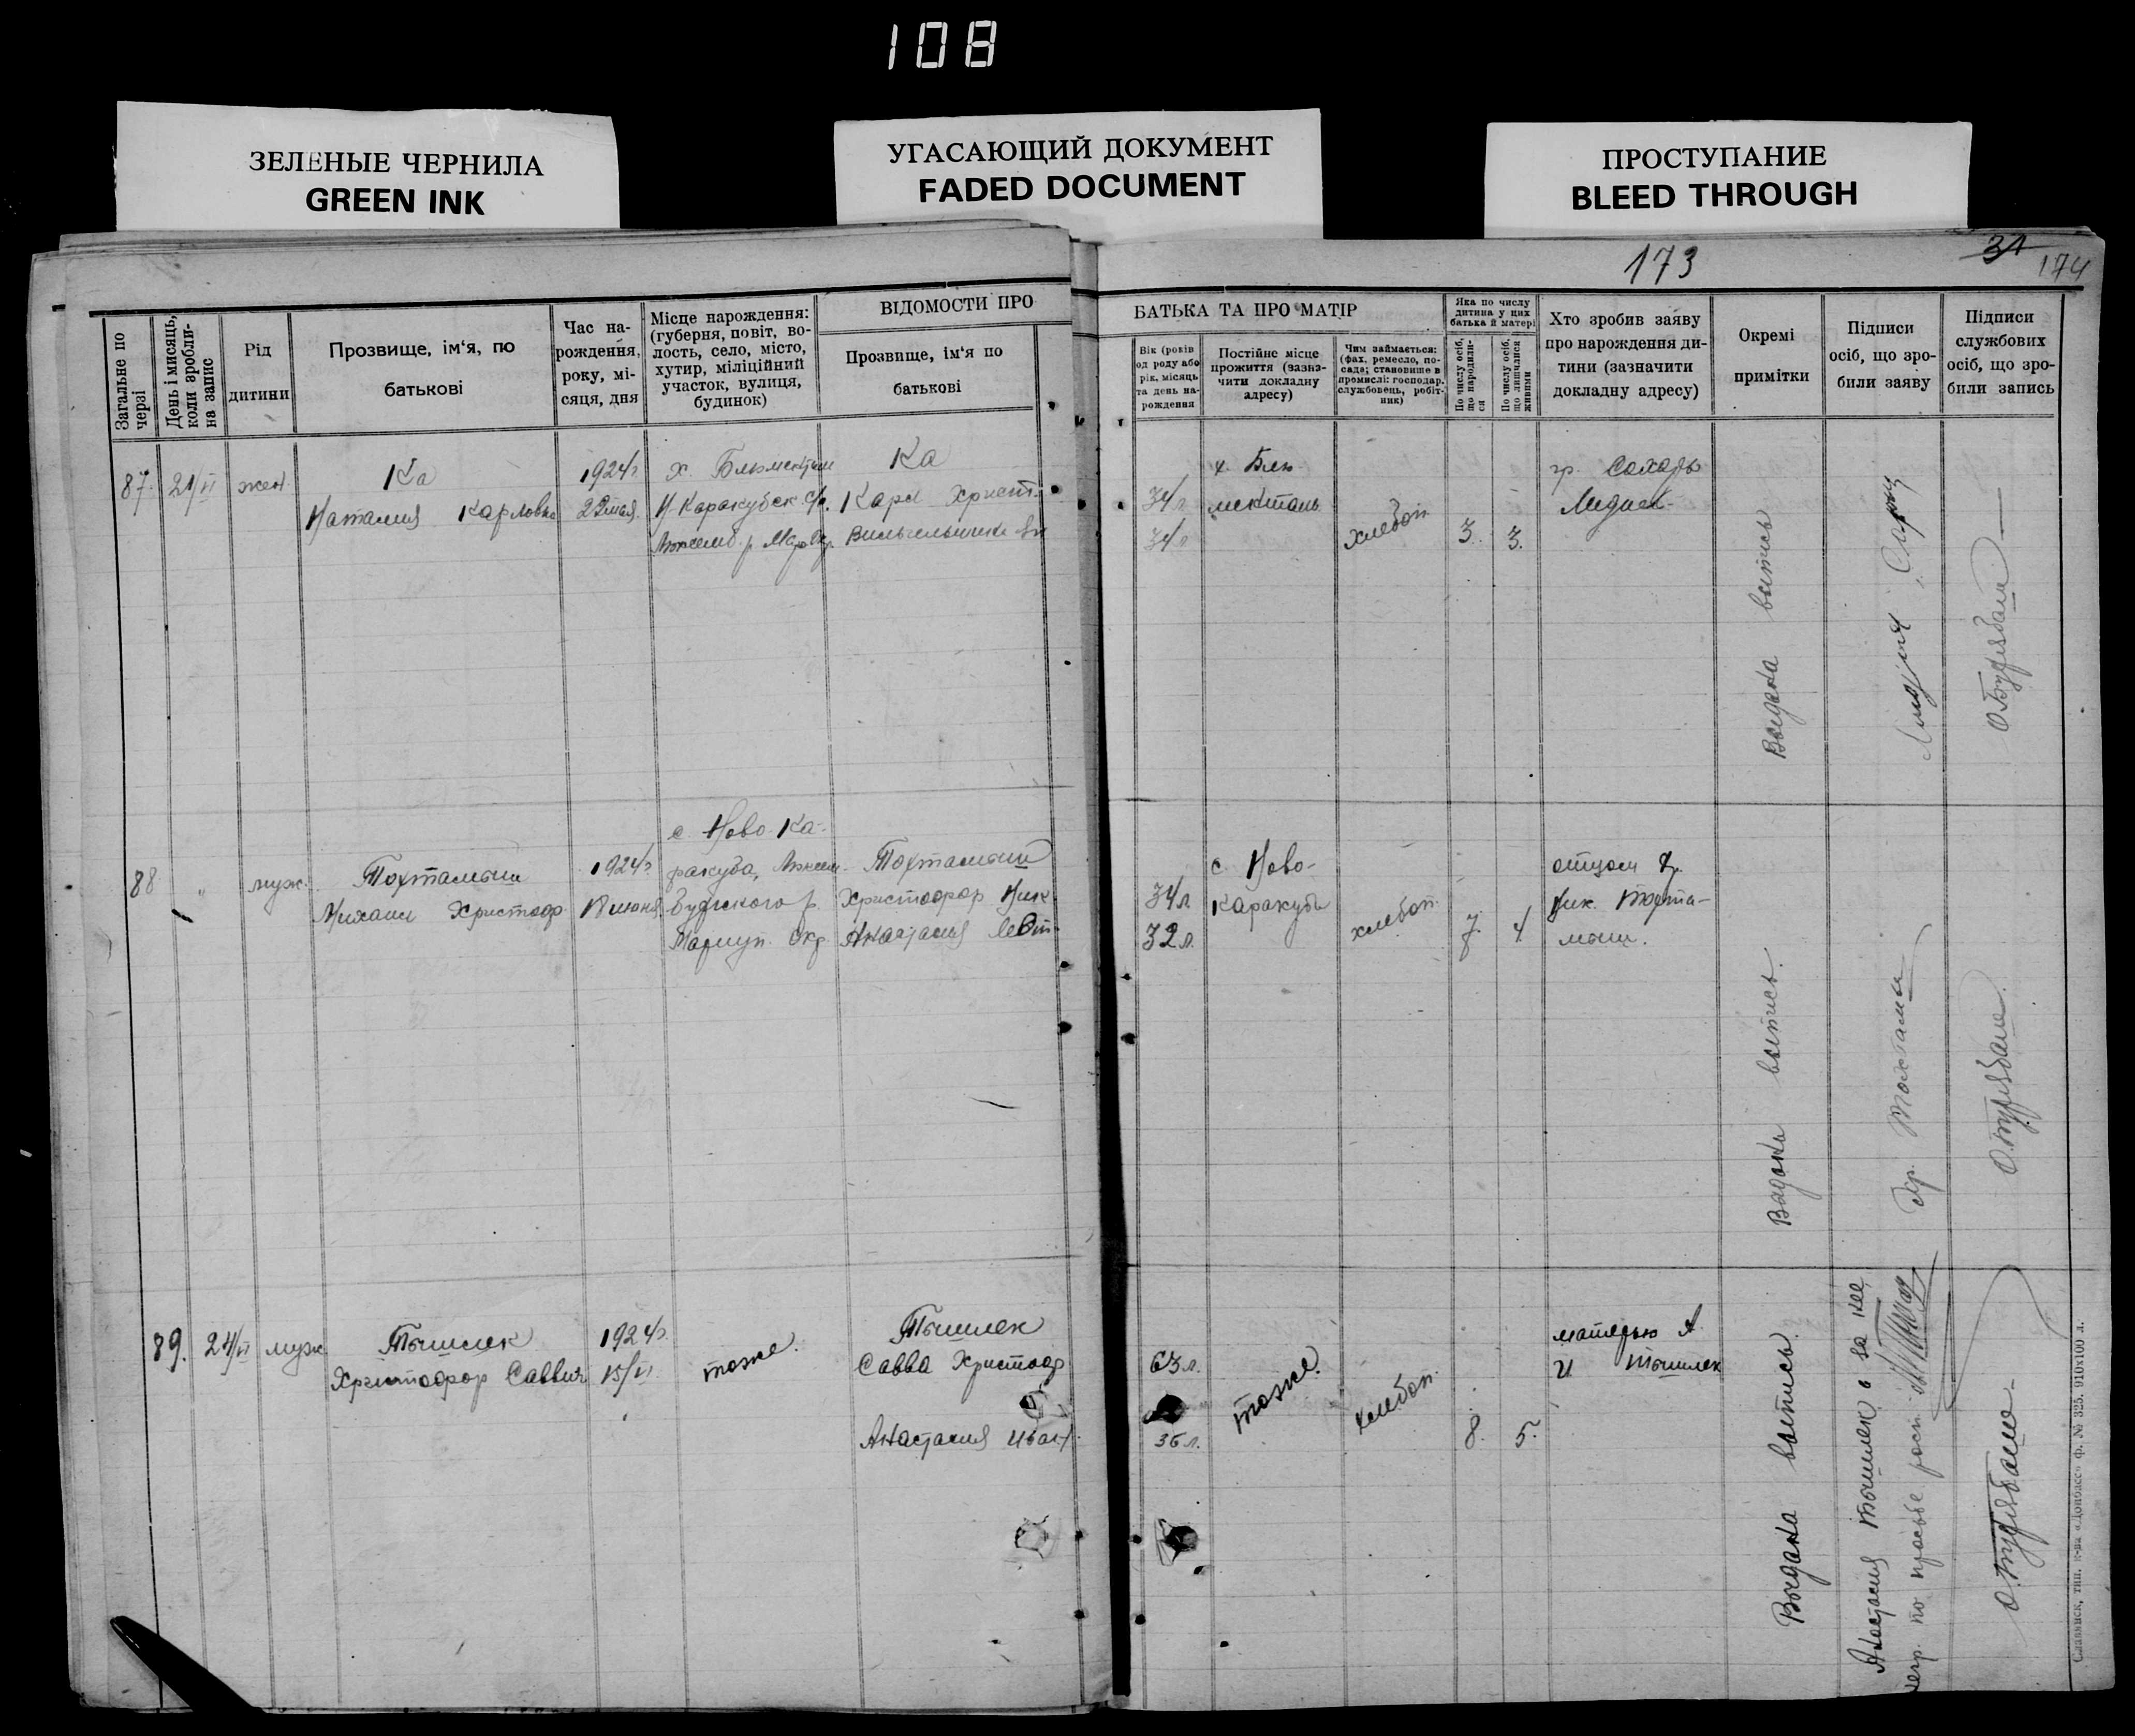 108
ЗЕЛЕНЫЕ ЧЕРНИЛА
GREEN INK
УГАСАЮЩИЙ ДОКУМЕНТ
FADED DOCUMENT
ПРОСТУПАНИЕ
BLEED THROUGH
173
31
174
ВІДОМОСТИ ПРО
БАТЬКА ТА ПРО МАТІР
Загальне по
черзі
День і мисяць,
коли зробли-
на запис
Рід
дитини
Прозвище, ім‘я, по
батькові
Час на-
рождення,
року, мі-
сяця, дня
Місце нарождення:
(губерня, повіт, во-
лость, село, місто,
хутир, міліційний
участок, вулиця,
будинок)
Прозвище, ім‘я по
батькові
Вік (років
од роду або
рік, місяць
та день на-
рождення
Постійне місце
прожиття (зазна-
чити докладну
адресу)
Чим займається:
(фах, ремесло, по-
сада; становище в
промислі: господар,
службовець, робіт-
ник)
Яка по числу
дитина у цих
батька й матері
По числу осіб,
що народили-
ся
По числу осіб,
що лишчалися
живими
Хто зробив заяву
про нарождення ди-
тини (зазначити
докладну адресу)
Окремі
примітки
Підписи
осіб, що зро-
били заяву
Підписи
службових
осіб, що зро-
били запись
87. 21/VI жен
Ка
Наталия Карловна
1924г
22 мая.
Н. Каракубск с/с.
Ка
Карл Христ.
34 л
34 л
хлебоп
3. 3.
гр.
Выдана выпись
88 " муж.
Тохтамыш
Михаил Христоф
1924г
18 июня
с. Ново-Ка-
ракуба,
Мариуп. Окр
Тохтамыш
Христофор Ник
Анастасия
34 л
32 л.
с. Ново-
Каракуба
хлебоп.
7. 4
отцом Хр.
Ник. Тохта-
мыш.
Выдана выпись.
Хр. Тохтамыш
89. 24/VI муж
Тышлек
Христофор Саввич
1924г.
15/VI.
тоже.
Тышлек
Савва Христоф
Анастасия Иван.
63 л.
36 л.
тоже.
хлебоп.
8. 5.
матерью А.
И. Тышлек
Выдана выпись.
Анастасия Тышлек а за нее
негр. по просьбе росп.
Славянск, тип. к-ва «Донбасс» ф. № 325. 910x100 л.